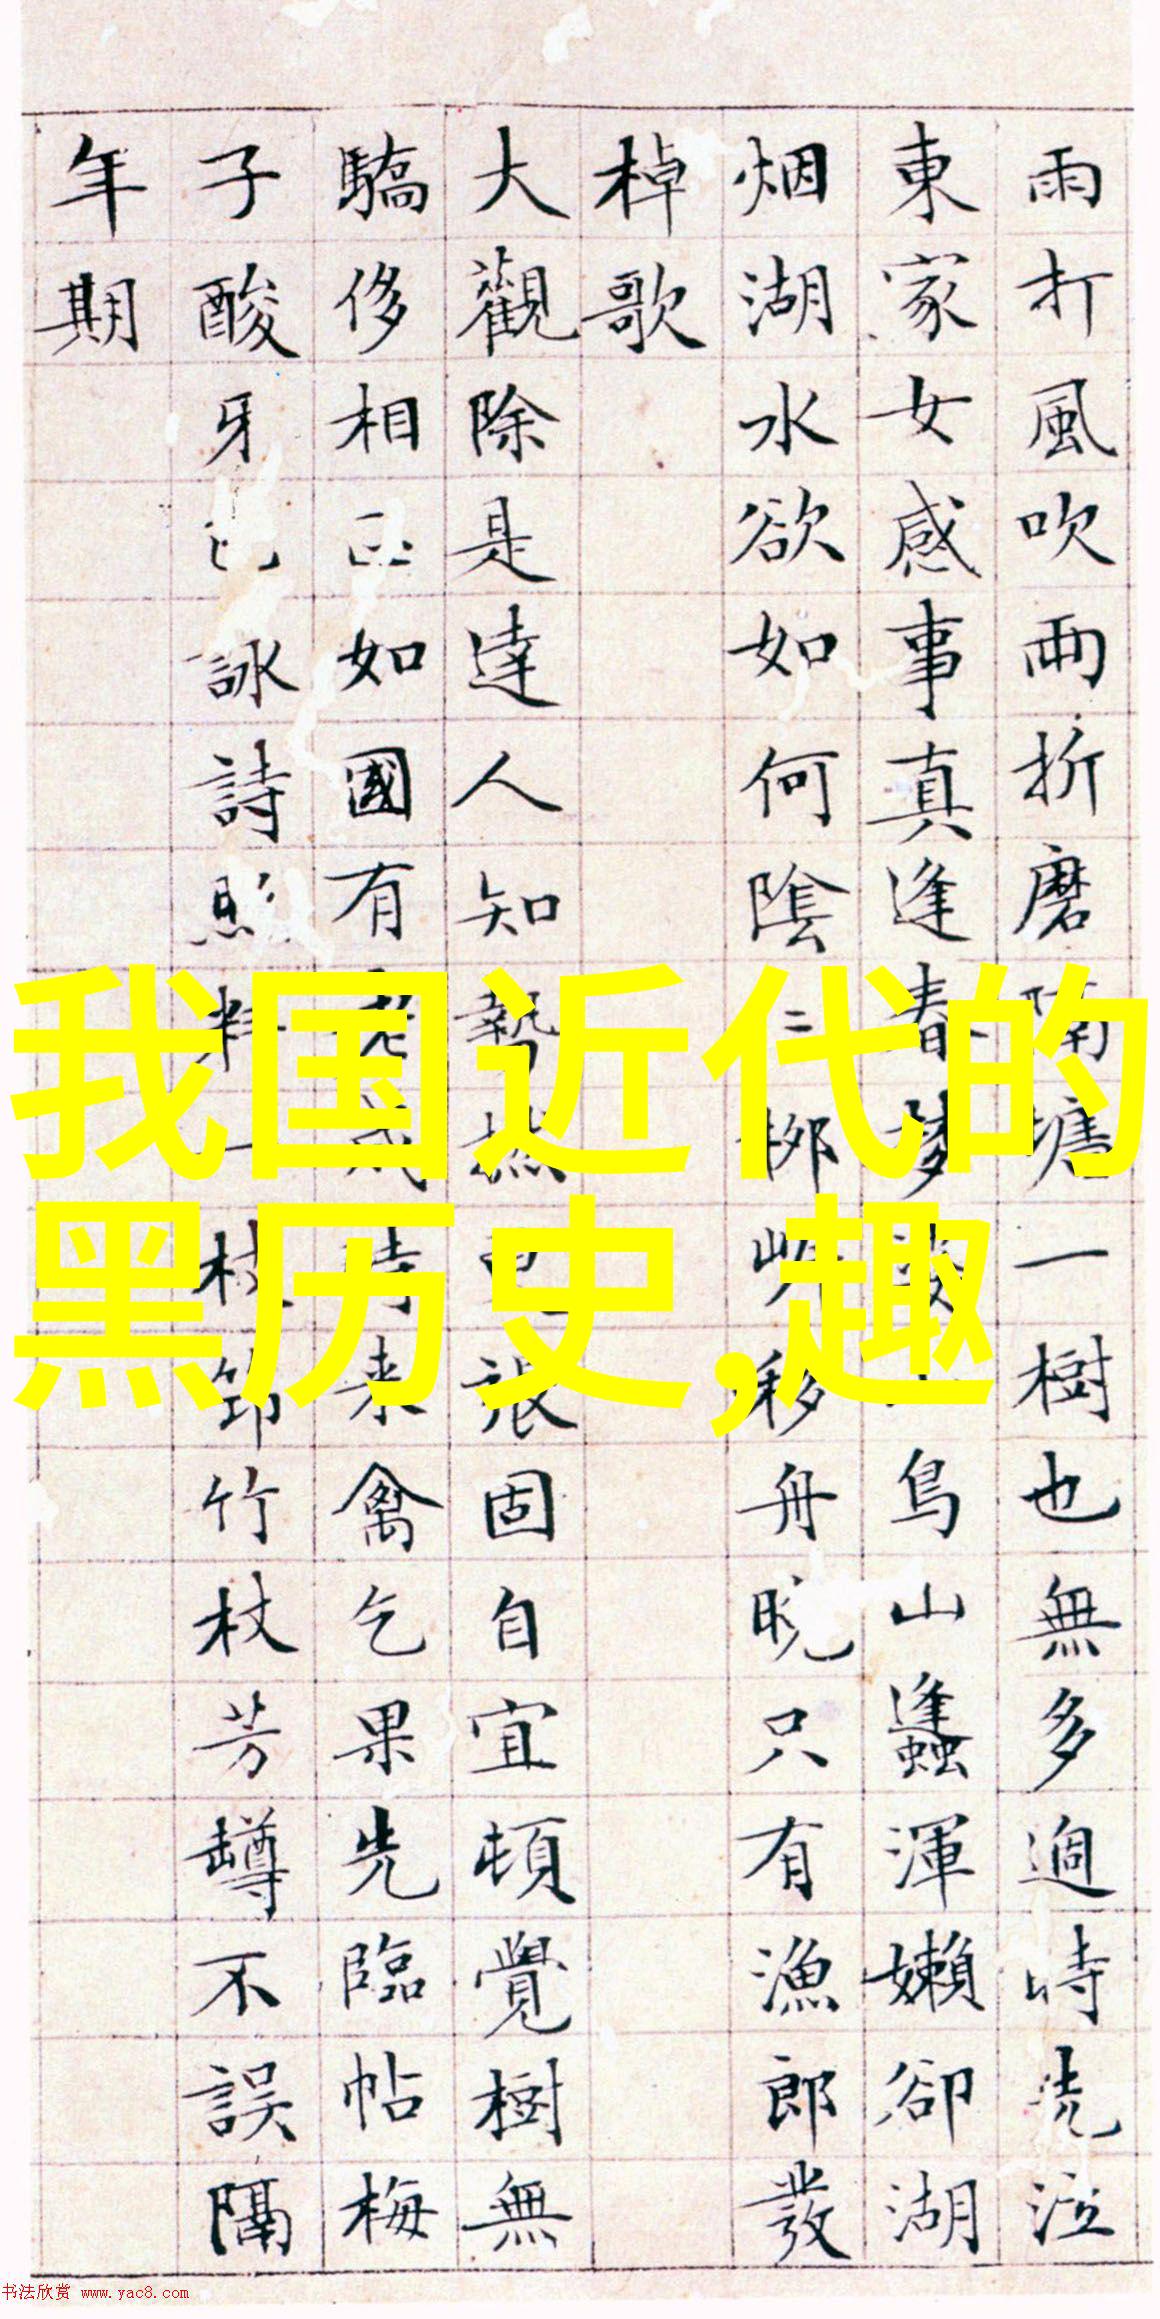 雨打風吹雨折磨南塘一樹也無多過時洗泣
東家女感事真逢春夢烏山蠭渾嬾卻湖
烟湖水欲如何陰二柳岍移舟晚只有漁郎發
棹歌
大觀除是達人知勢燃更張固自宜頓覺樹無
驕侈相如國有老成時来禽乞果先臨帖梅
子酸牙詠詩照料一枝節竹杖芳罇不誤隔
年期
我国近代的
黑历史,趣
书法欣赏 www.yac8.com